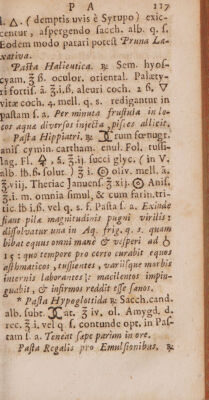 P A 117
△. (demptis uvis è Syrupo) exic-
centur, aspergendo sacch. alb. q. s.
Eodem modo parari potest Pruna La-
xativa.
Pasta Halieutica. ℞ Sem. hyos-
cyam. ℥ ß. oculor. oriental. Palæty-
ri fortis. ā. ℥.iß. aleuri coch. 2 6.
vitæ coch. 4. mell. q. s. redigantur in
pastam s. a. Per minuta frustula in lo-
cos aquæ diversos injecta, pisces allicit.
Pasta Hippiatri. ℞ rum fœnugr.
anis cymin. cartham. enul. Fol. tussi-
lag. Fl. ℥. ij. succi glyc. (in V.
alb. lb.ß. solut.) ℥ i. oliv. mell. ā.
℥.viij. Theriac Januens ℥ xij. Anis.
℥.i. m. omnia simul, & cum farin. tri-
tic. lb iß. vel q. s. f. Pasta s. a. Exinde
fiant pilæ magnitudinis pugni virilis:
dissolvatur una in Aq. frig. q. s. quam
bibat equus omni manè & vesperi ad
15: quo tempore pro certo curabit equos
asthmaticos, tussientes, variisque morbis
internis laborantes: macilentos impin-
guabit, & infirmos reddit esse sanos.
* Pasta Hypoglottida ℞ Sacch. cand.
alb. subt. at. ℥ iv. ol. Amygd. d.
rec. ℥ i. vel q. s. contunde opt. in Pas-
tam s. a. Teneat sæpe parùm in ore.
Pasta Regalis pro Emulsionibus. ℞